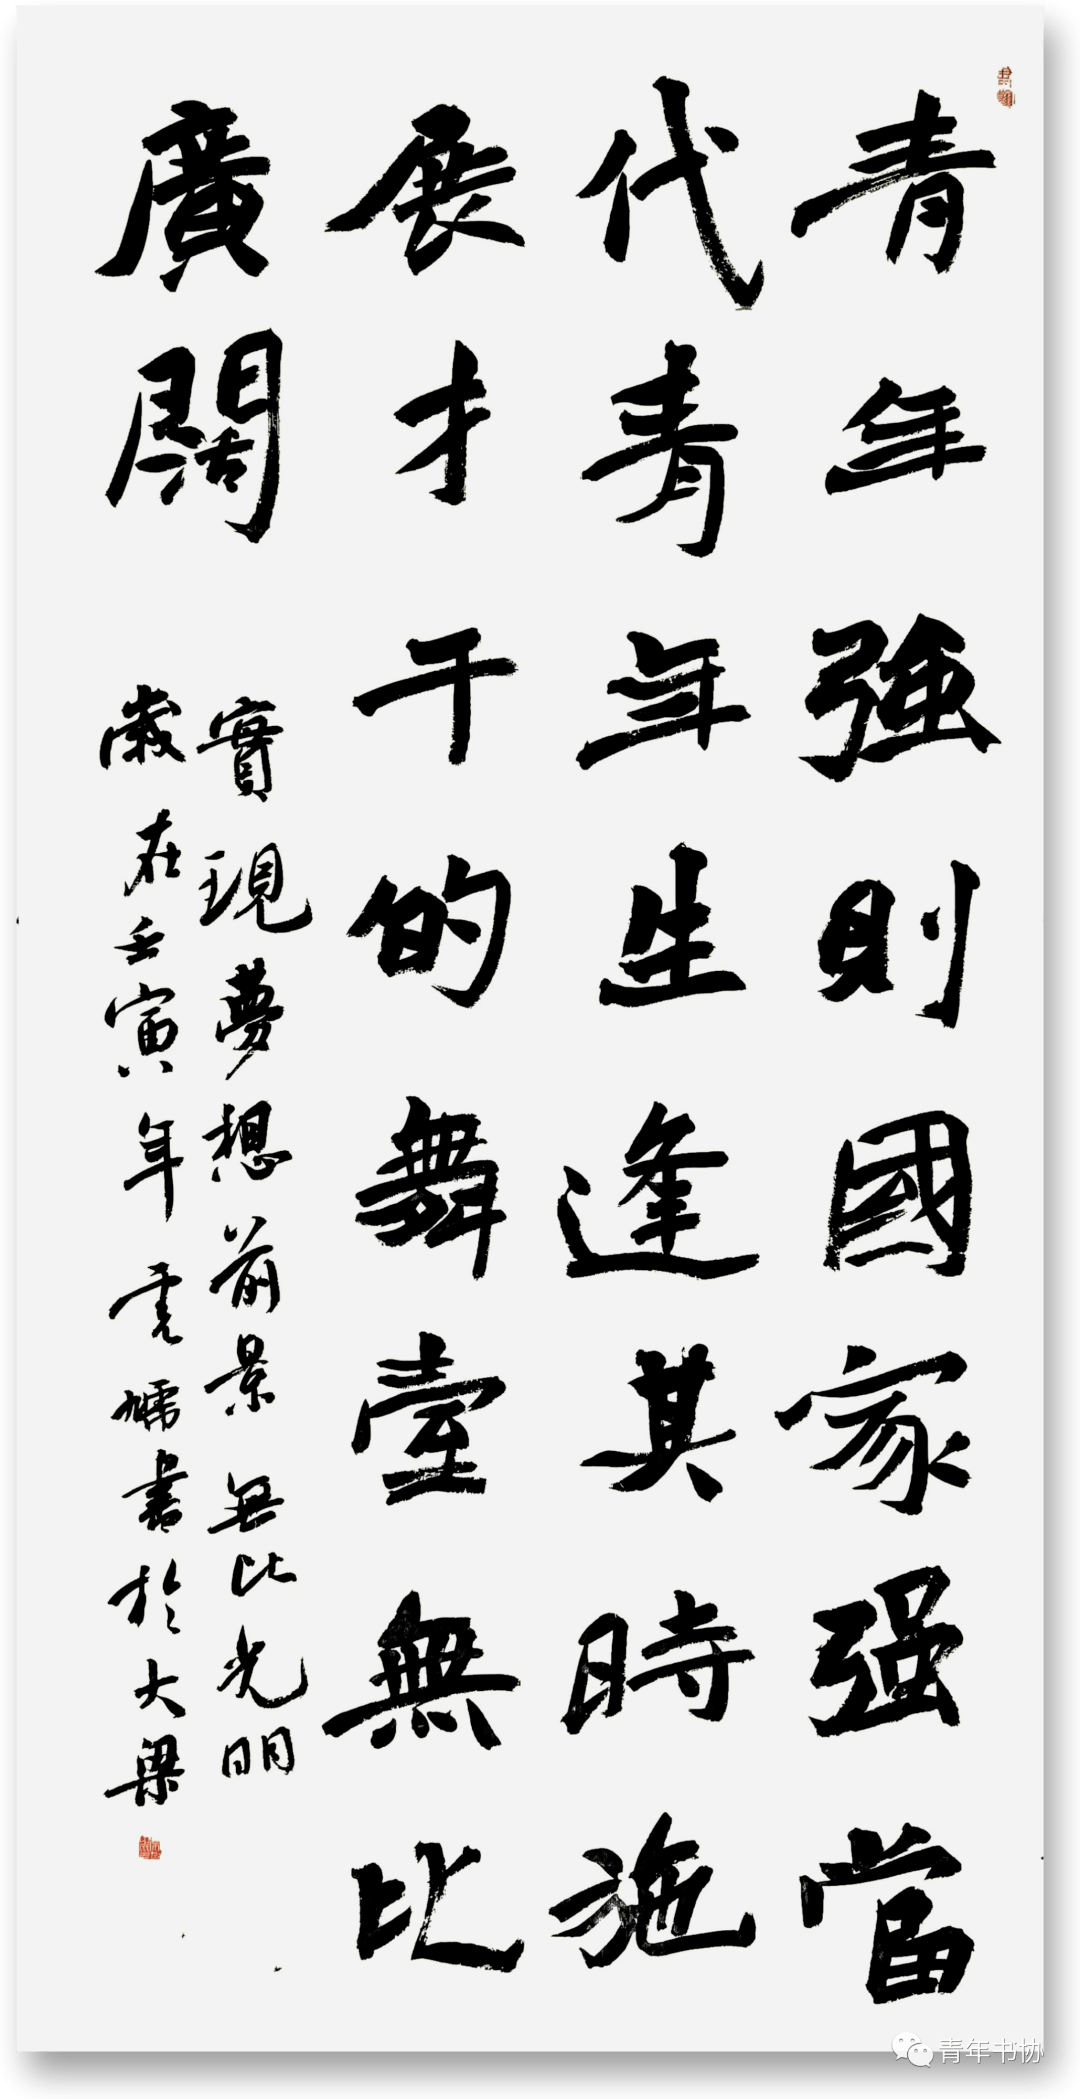 青年強則國家强當
代青年生逢其時施
展才干的舞臺無比
廣闊
實現夢想前景無比光明
歲在壬寅年 書於大梁
青年书协